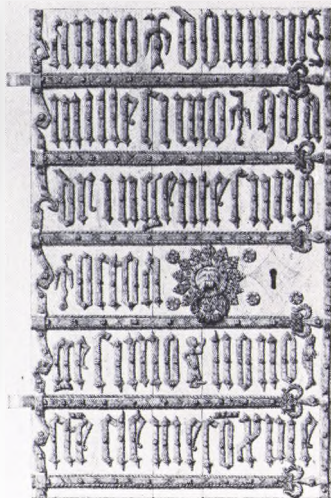 anno domini
millesimo qua
dringentesimo
octoa
gesimo nono